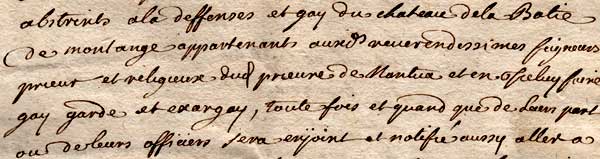 abstrints ala deffenses et gay du chateau dela Batie
de montange appartenants auxds reverendissimes seigneurs
prieur et religieux dud prieuré de Nantua et en icelluy faire
gay garde et exargay, toute fois et quand que de Leurs part
ou de leurs officiers sera enjoint et notifié aussy aller a